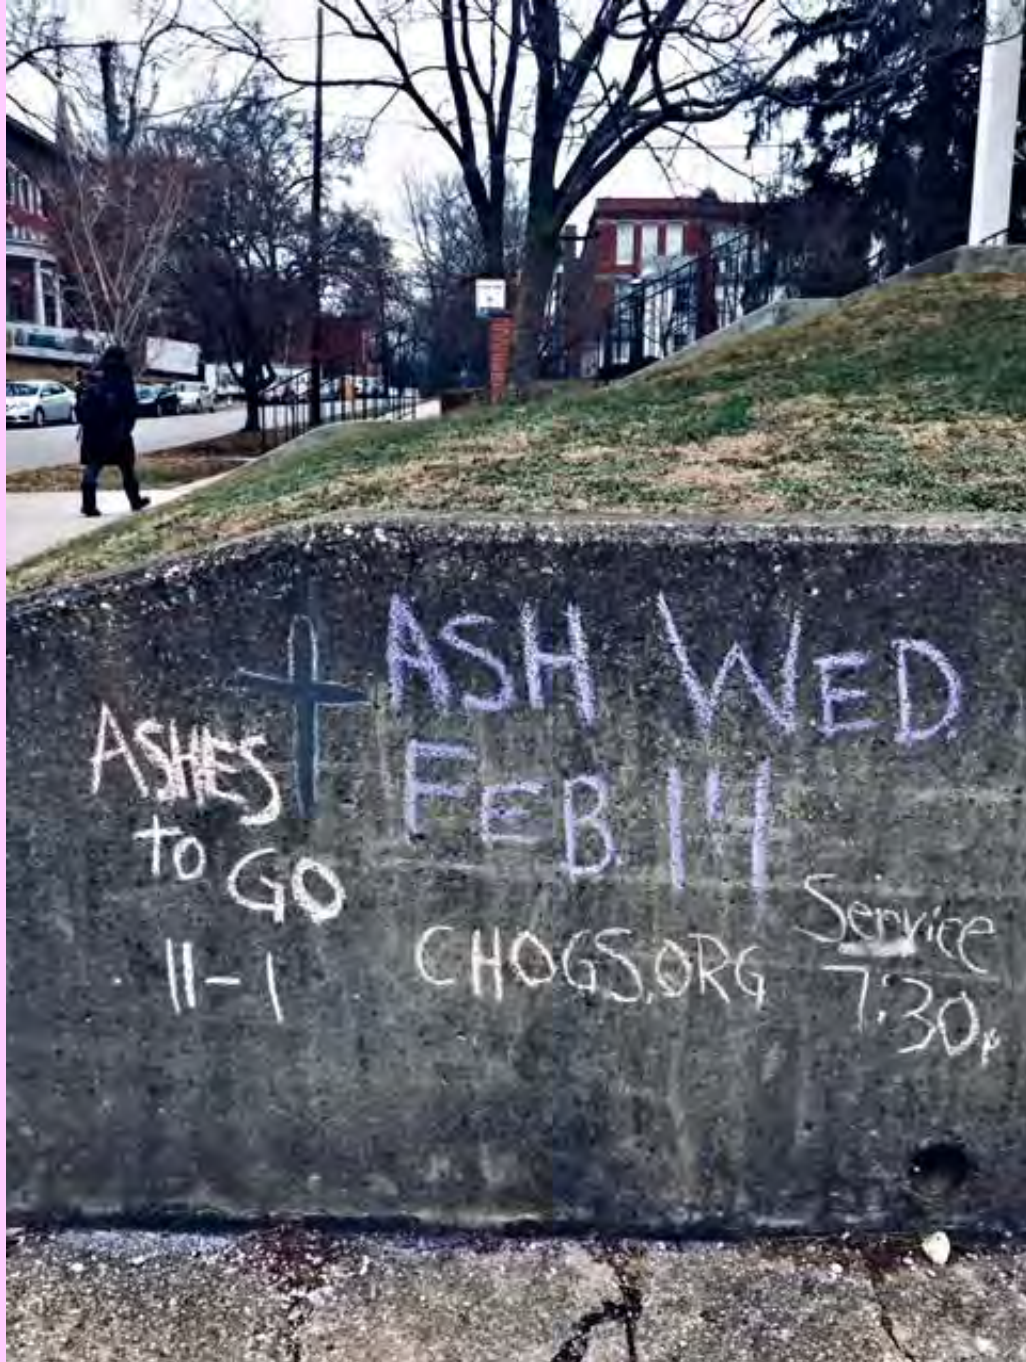 ASH WED.
FEB. 14
ASHES
to GO
11-1
CHOGS.ORG
Service
7:30p